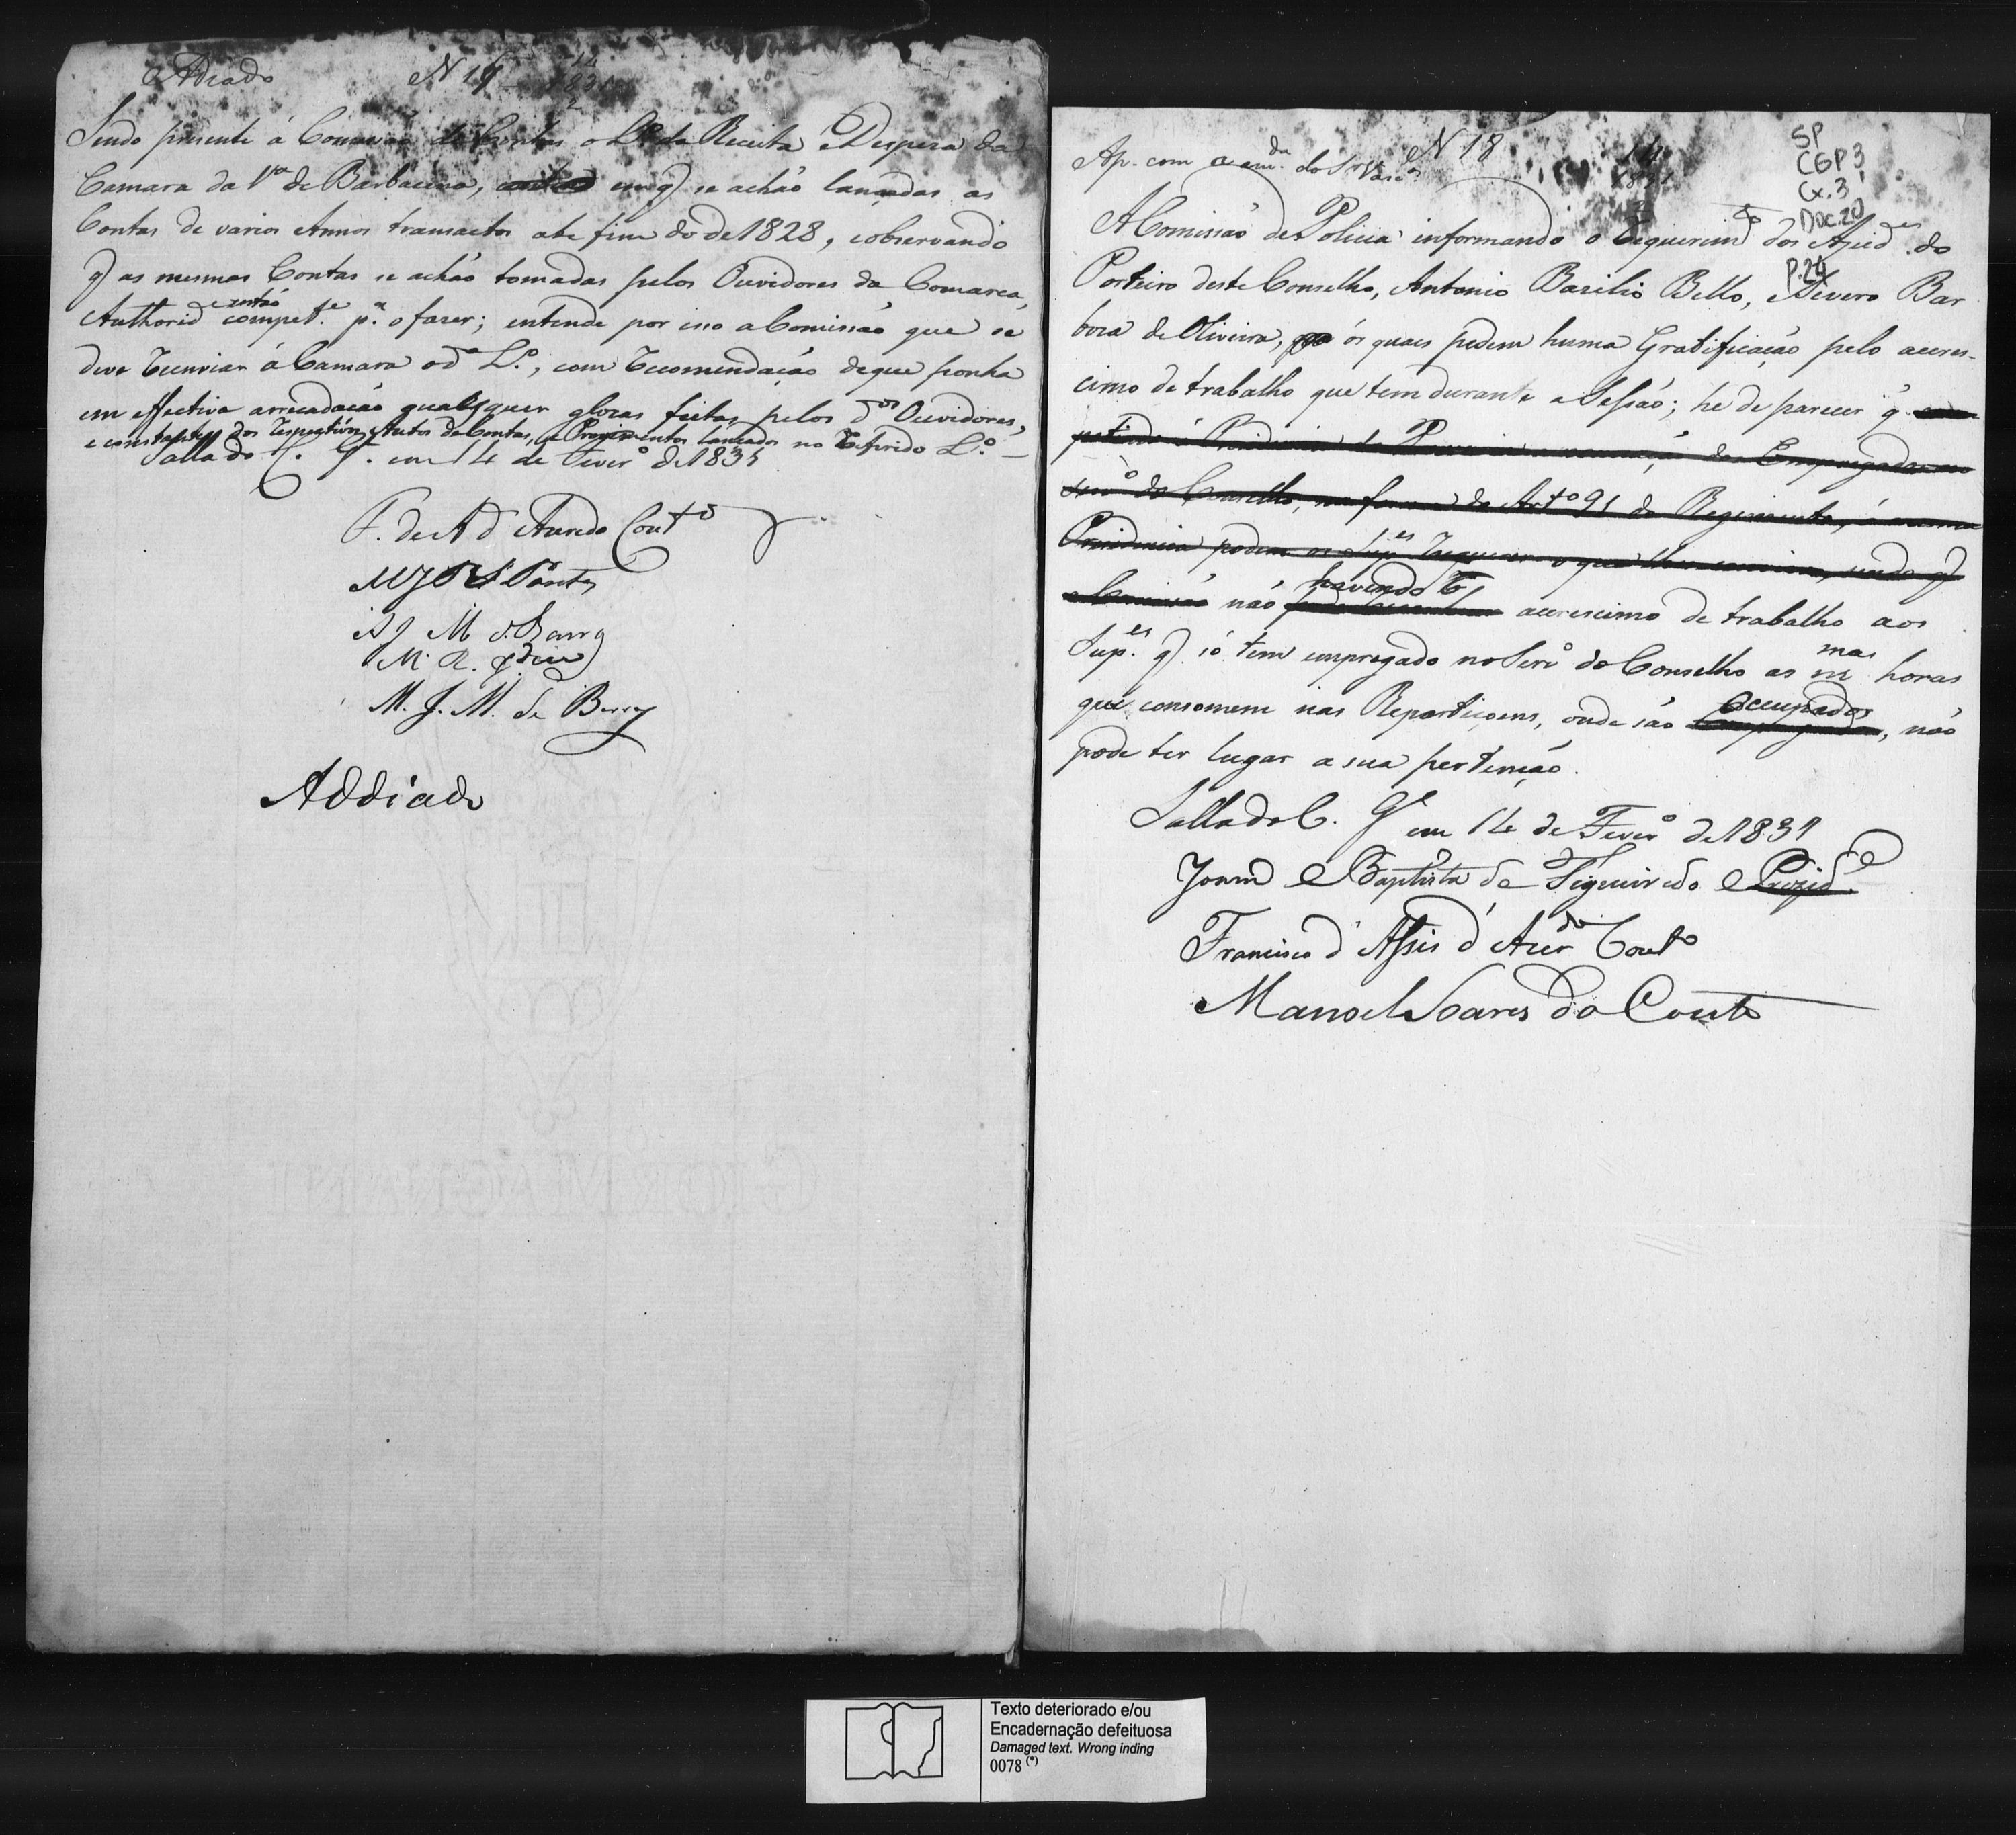 Adiado N 19 14
1831
2
Sendo presente á Comissão de Contas o L.o da Receita e Despeza da
Camara da V.a de Barbacena, em q se achão lançadas as
Contas de varios Annos transactos ate fim do de 1828, e observando
q as mesmas Contas se achão tomadas pelos Ouvidores da Comarca,
Authorid.e então compet.e p.a o fazer; entende por isso a Comissão que se
deve reenviar á Camara o d.o L.o, com recomendação de que ponha
em effectiva arrecadação quaesquer glozas feitas pelos d.os Ouvidores,
e constantes dos respectivos Autos de Contas, e Provimentos lançados no referido L.o
Salla do C. G. em 14 de Fever.o de 1831
F. de A d'Azeredo Cout.o
A J M d. Barros
M. J. M. de Barros
Addiado
Ap. com a em.da do S.r Vasc.os N 18 14
SP
CGP 3
Cx. 3
Doc. 20
P. 24
A Comissão de Policia informando o requerim.to dos Ajud.es do
Porteiro deste Conselho, Antonio Bazilio Bello, e Severo Bar
boza de Oliveira, os quaes pedem huma Gratificação pelo acres-
cimo de trabalho que tem durante a Sessão; he de parecer q
petindo á Presidencia da Provincia a nomeação dos Empregados no
serv.o do Conselho, na forma do Art.o 91 do Regimento, á mesma
Presidencia podem os Sup.es requerer o que lhes convier, sendo q
a Comissão não havendo acrescimo de trabalho aos
Sup.es q só tem empregado no Serv.o do Conselho as mas horas
que consomem nas Reparticoens, onde são occupados, não
pode ter lugar a sua pertenção.
Salla do C. G.l em 14 de Fever.o de 1831
Joam Baptista de Figueiredo Prezid.e
Francisco d'Assis d'Azer.do Cout.o
Manoel Soares do Couto
Texto deteriorado e/ou
Encadernação defeituosa
Damaged text. Wrong inding
0078 (*)